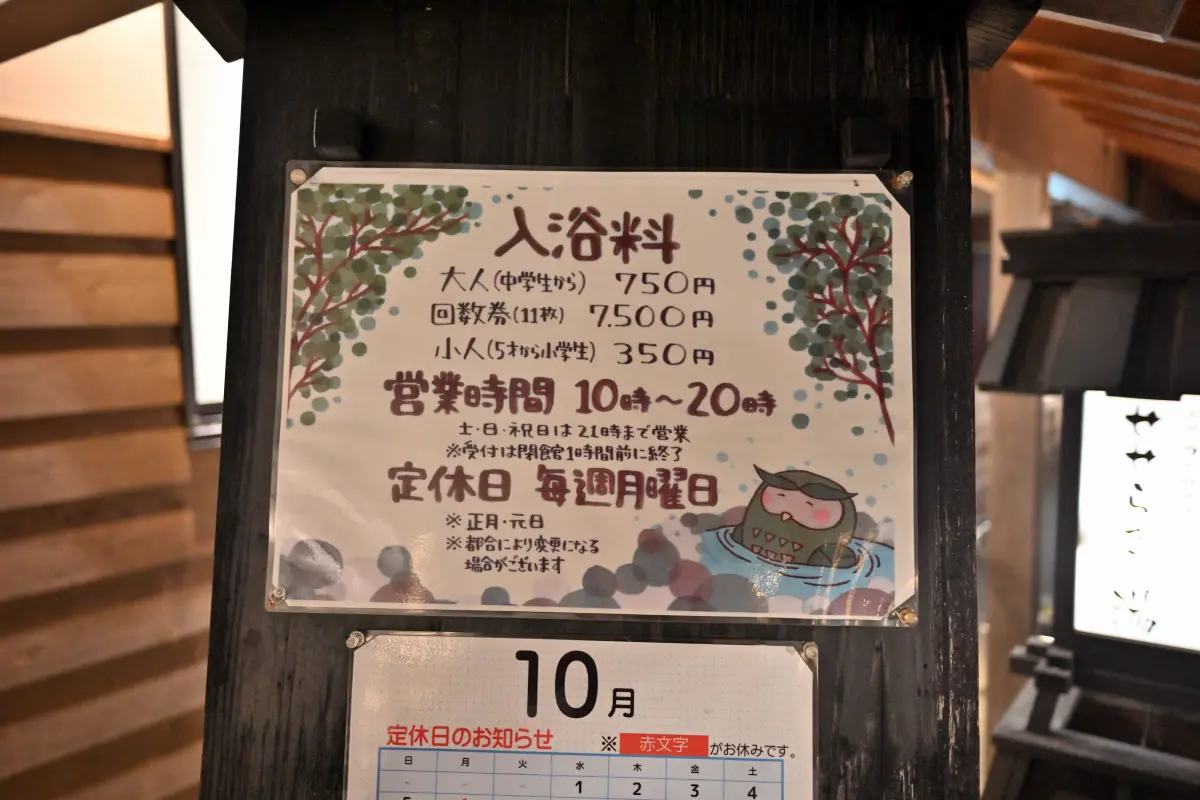 入浴料
大人(中学生から) 750円
回数券(11枚) 7.500円
小人(5才から小学生) 350円
営業時間 10時〜20時
土・日・祝日は21時まで営業
※受付は閉館1時間前に終了
定休日 毎週月曜日
※正月・元日
※都合により変更になる
場合がございます
10月
定休日のお知らせ ※ 赤文字 がお休みです。
日 月 火 水 木 金 土
- - - 1 2 3 4